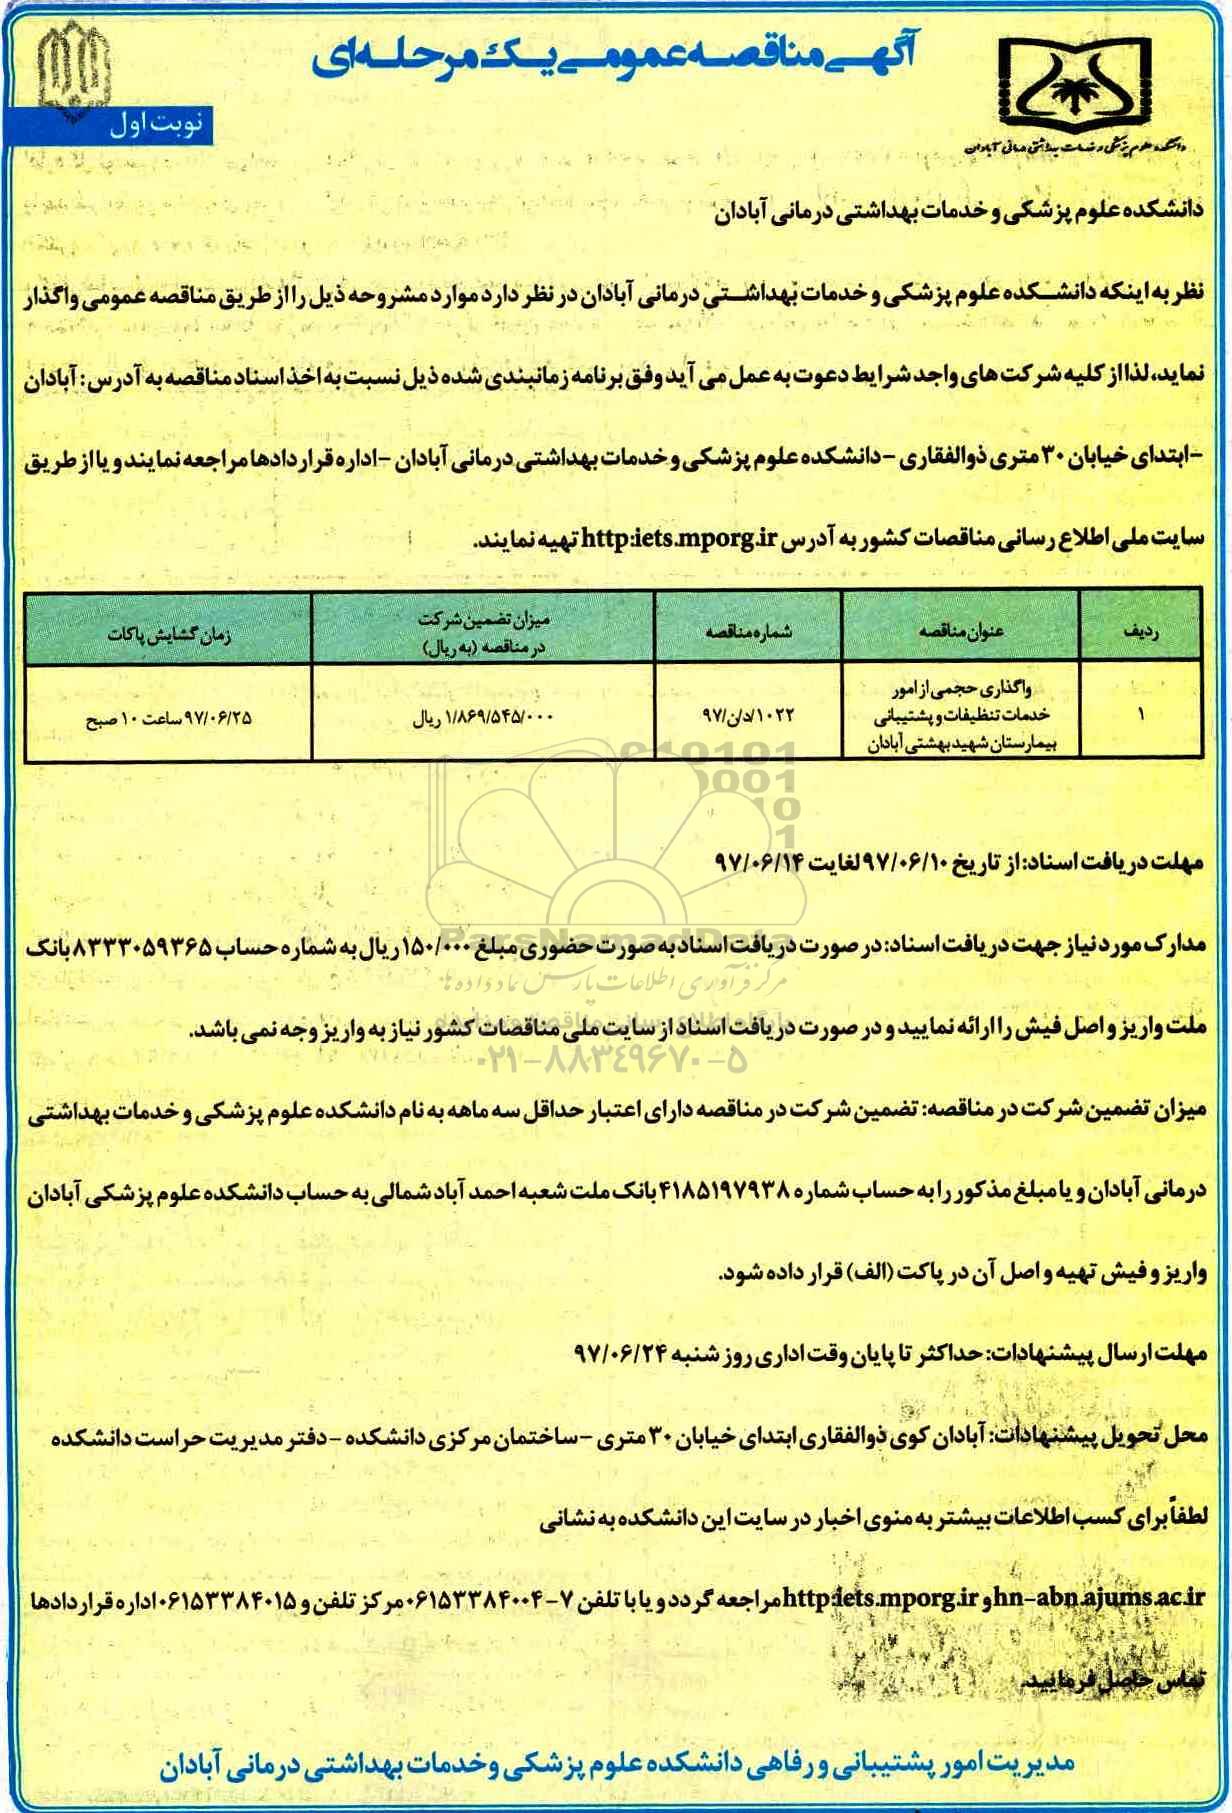 آگهی مناقصه عمومی یک مرحله‌ای
نوبت اول
دانشکده علوم پزشکی و خدمات بهداشتی درمانی آبادان
دانشکده علوم پزشکی و خدمات بهداشتی درمانی آبادان
نظر به اینکه دانشکده علوم پزشکی و خدمات بهداشتی درمانی آبادان در نظر دارد موارد مشروحه ذیل را از طریق مناقصه عمومی واگذار
نماید، لذا از کلیه شرکت های واجد شرایط دعوت به عمل می آید وفق برنامه زمانبندی شده ذیل نسبت به اخذ اسناد مناقصه به آدرس: آبادان
-ابتدای خیابان ۳۰ متری ذوالفقاری -دانشکده علوم پزشکی و خدمات بهداشتی درمانی آبادان -اداره قراردادها مراجعه نمایند و یا از طریق
سایت ملی اطلاع رسانی مناقصات کشور به آدرس http:iets.mporg.ir تهیه نمایند.
ردیف عنوان مناقصه شماره مناقصه میزان تضمین شرکت در مناقصه (به ریال) زمان گشایش پاکات
۱ واگذاری حجمی از امور خدمات تنظیفات و پشتیبانی بیمارستان شهید بهشتی آبادان ۱۰۲۲/د/ن/۹۷ ۱/۸۶۹/۵۴۵/۰۰۰ ریال ۹۷/۰۶/۲۵ ساعت ۱۰ صبح
مهلت دریافت اسناد: از تاریخ ۹۷/۰۶/۱۰ لغایت ۹۷/۰۶/۱۴
مدارک مورد نیاز جهت دریافت اسناد: در صورت دریافت اسناد به صورت حضوری مبلغ ۱۵۰/۰۰۰ ریال به شماره حساب ۸۳۳۳۰۵۹۳۶۵ بانک
ملت واریز و اصل فیش را ارائه نمایید و در صورت دریافت اسناد از سایت ملی مناقصات کشور نیاز به واریز وجه نمی باشد.
میزان تضمین شرکت در مناقصه: تضمین شرکت در مناقصه دارای اعتبار حداقل سه ماهه به نام دانشکده علوم پزشکی و خدمات بهداشتی
درمانی آبادان و یا مبلغ مذکور را به حساب شماره ۴۱۸۵۱۹۷۹۳۸ بانک ملت شعبه احمد آباد شمالی به حساب دانشکده علوم پزشکی آبادان
واریز و فیش تهیه و اصل آن در پاکت (الف) قرار داده شود.
مهلت ارسال پیشنهادات: حداکثر تا پایان وقت اداری روز شنبه ۹۷/۰۶/۲۴
محل تحویل پیشنهادات: آبادان کوی ذوالفقاری ابتدای خیابان ۳۰ متری -ساختمان مرکزی دانشکده -دفتر مدیریت حراست دانشکده
لطفاً برای کسب اطلاعات بیشتر به منوی اخبار در سایت این دانشکده به نشانی
hn-abn.ajums.ac.ir و http:iets.mporg.ir مراجعه گردد و یا با تلفن ۷-۰۶۱۵۳۳۸۴۰۰۴ مرکز تلفن و ۰۶۱۵۳۳۸۴۰۱۵ اداره قراردادها
تماس حاصل فرمایید.
مدیریت امور پشتیبانی و رفاهی دانشکده علوم پزشکی و خدمات بهداشتی درمانی آبادان
ParsNamadData
مرکز فرآوری اطلاعات پارس نماد داده ها
۰۲۱-۸۸۳۴۹۶۷۰-۵